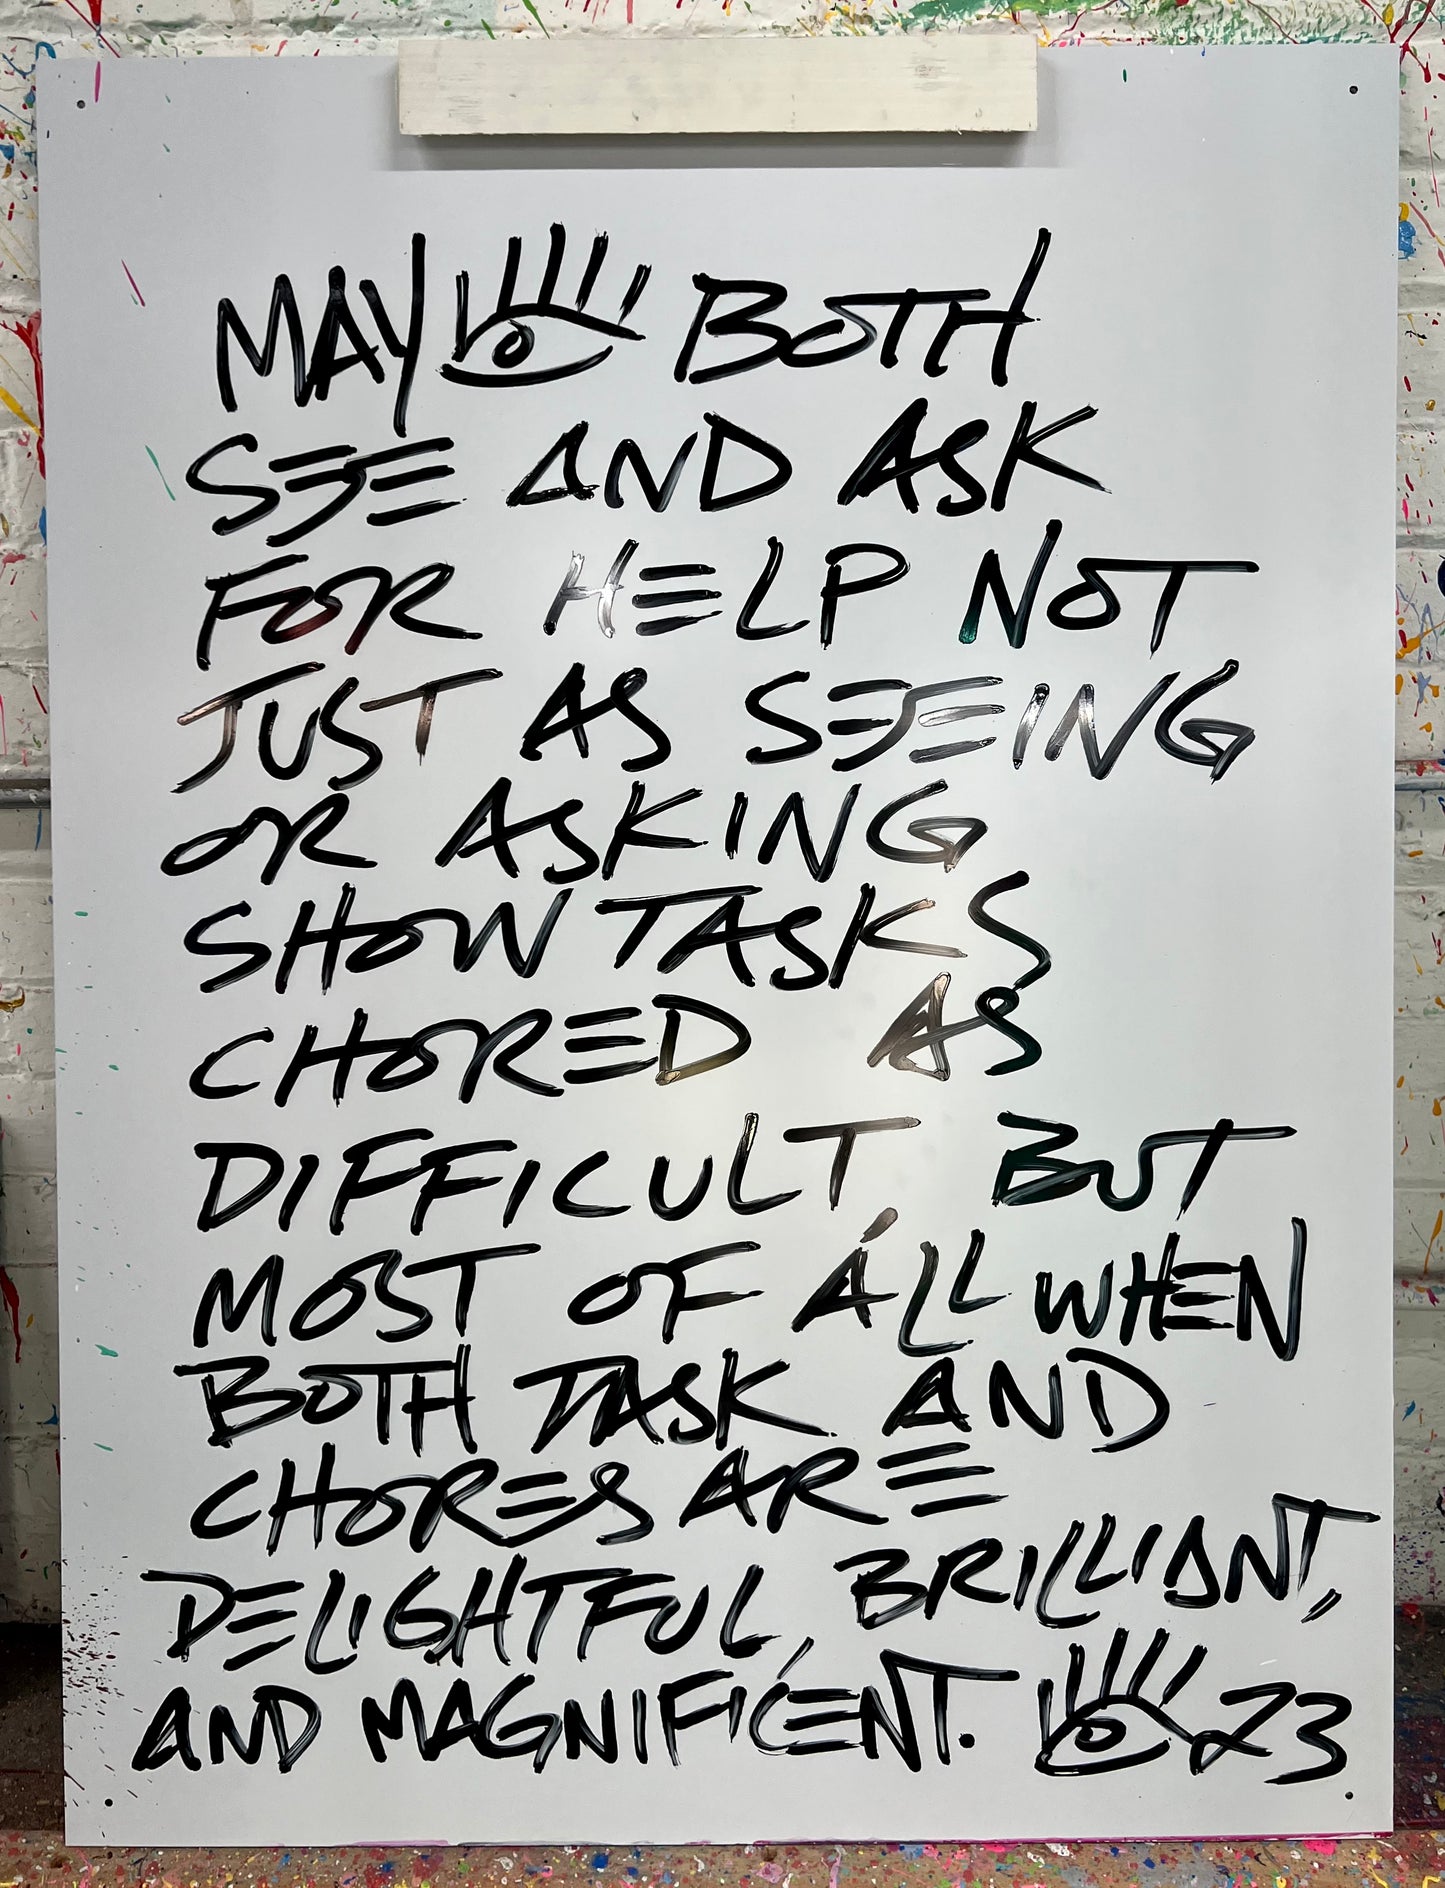 MAY BOTH
SEE AND ASK
FOR HELP NOT
JUST AS SEEING
OR ASKING
SHOW TASKS
CHORED AS
DIFFICULT, BUT
MOST OF ALL WHEN
BOTH TASK AND
CHORES ARE
DELIGHTFUL, BRILLIANT,
AND MAGNIFICENT. 23